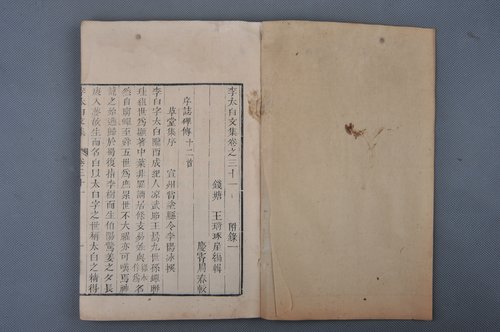 李太白文集卷之三十一 附錄一
錢塘 王琦琢崖編輯
慶霄周春較
序誌碑傳十二首
草堂集序 宣州當塗縣令李陽冰撰
李白字太白隴西成紀人涼武昭王暠九世孫蟬聯
珪組世為顯著中葉非罪謫居條支易姓
然自窮蟬至舜五世為庶累世不大曜亦可嘆焉神
龍之始逃歸於蜀復指李樹而生伯陽驚姜之夕長
庚入夢故生而名白以太白字之世稱太白之精得
李太白文集
卷三十